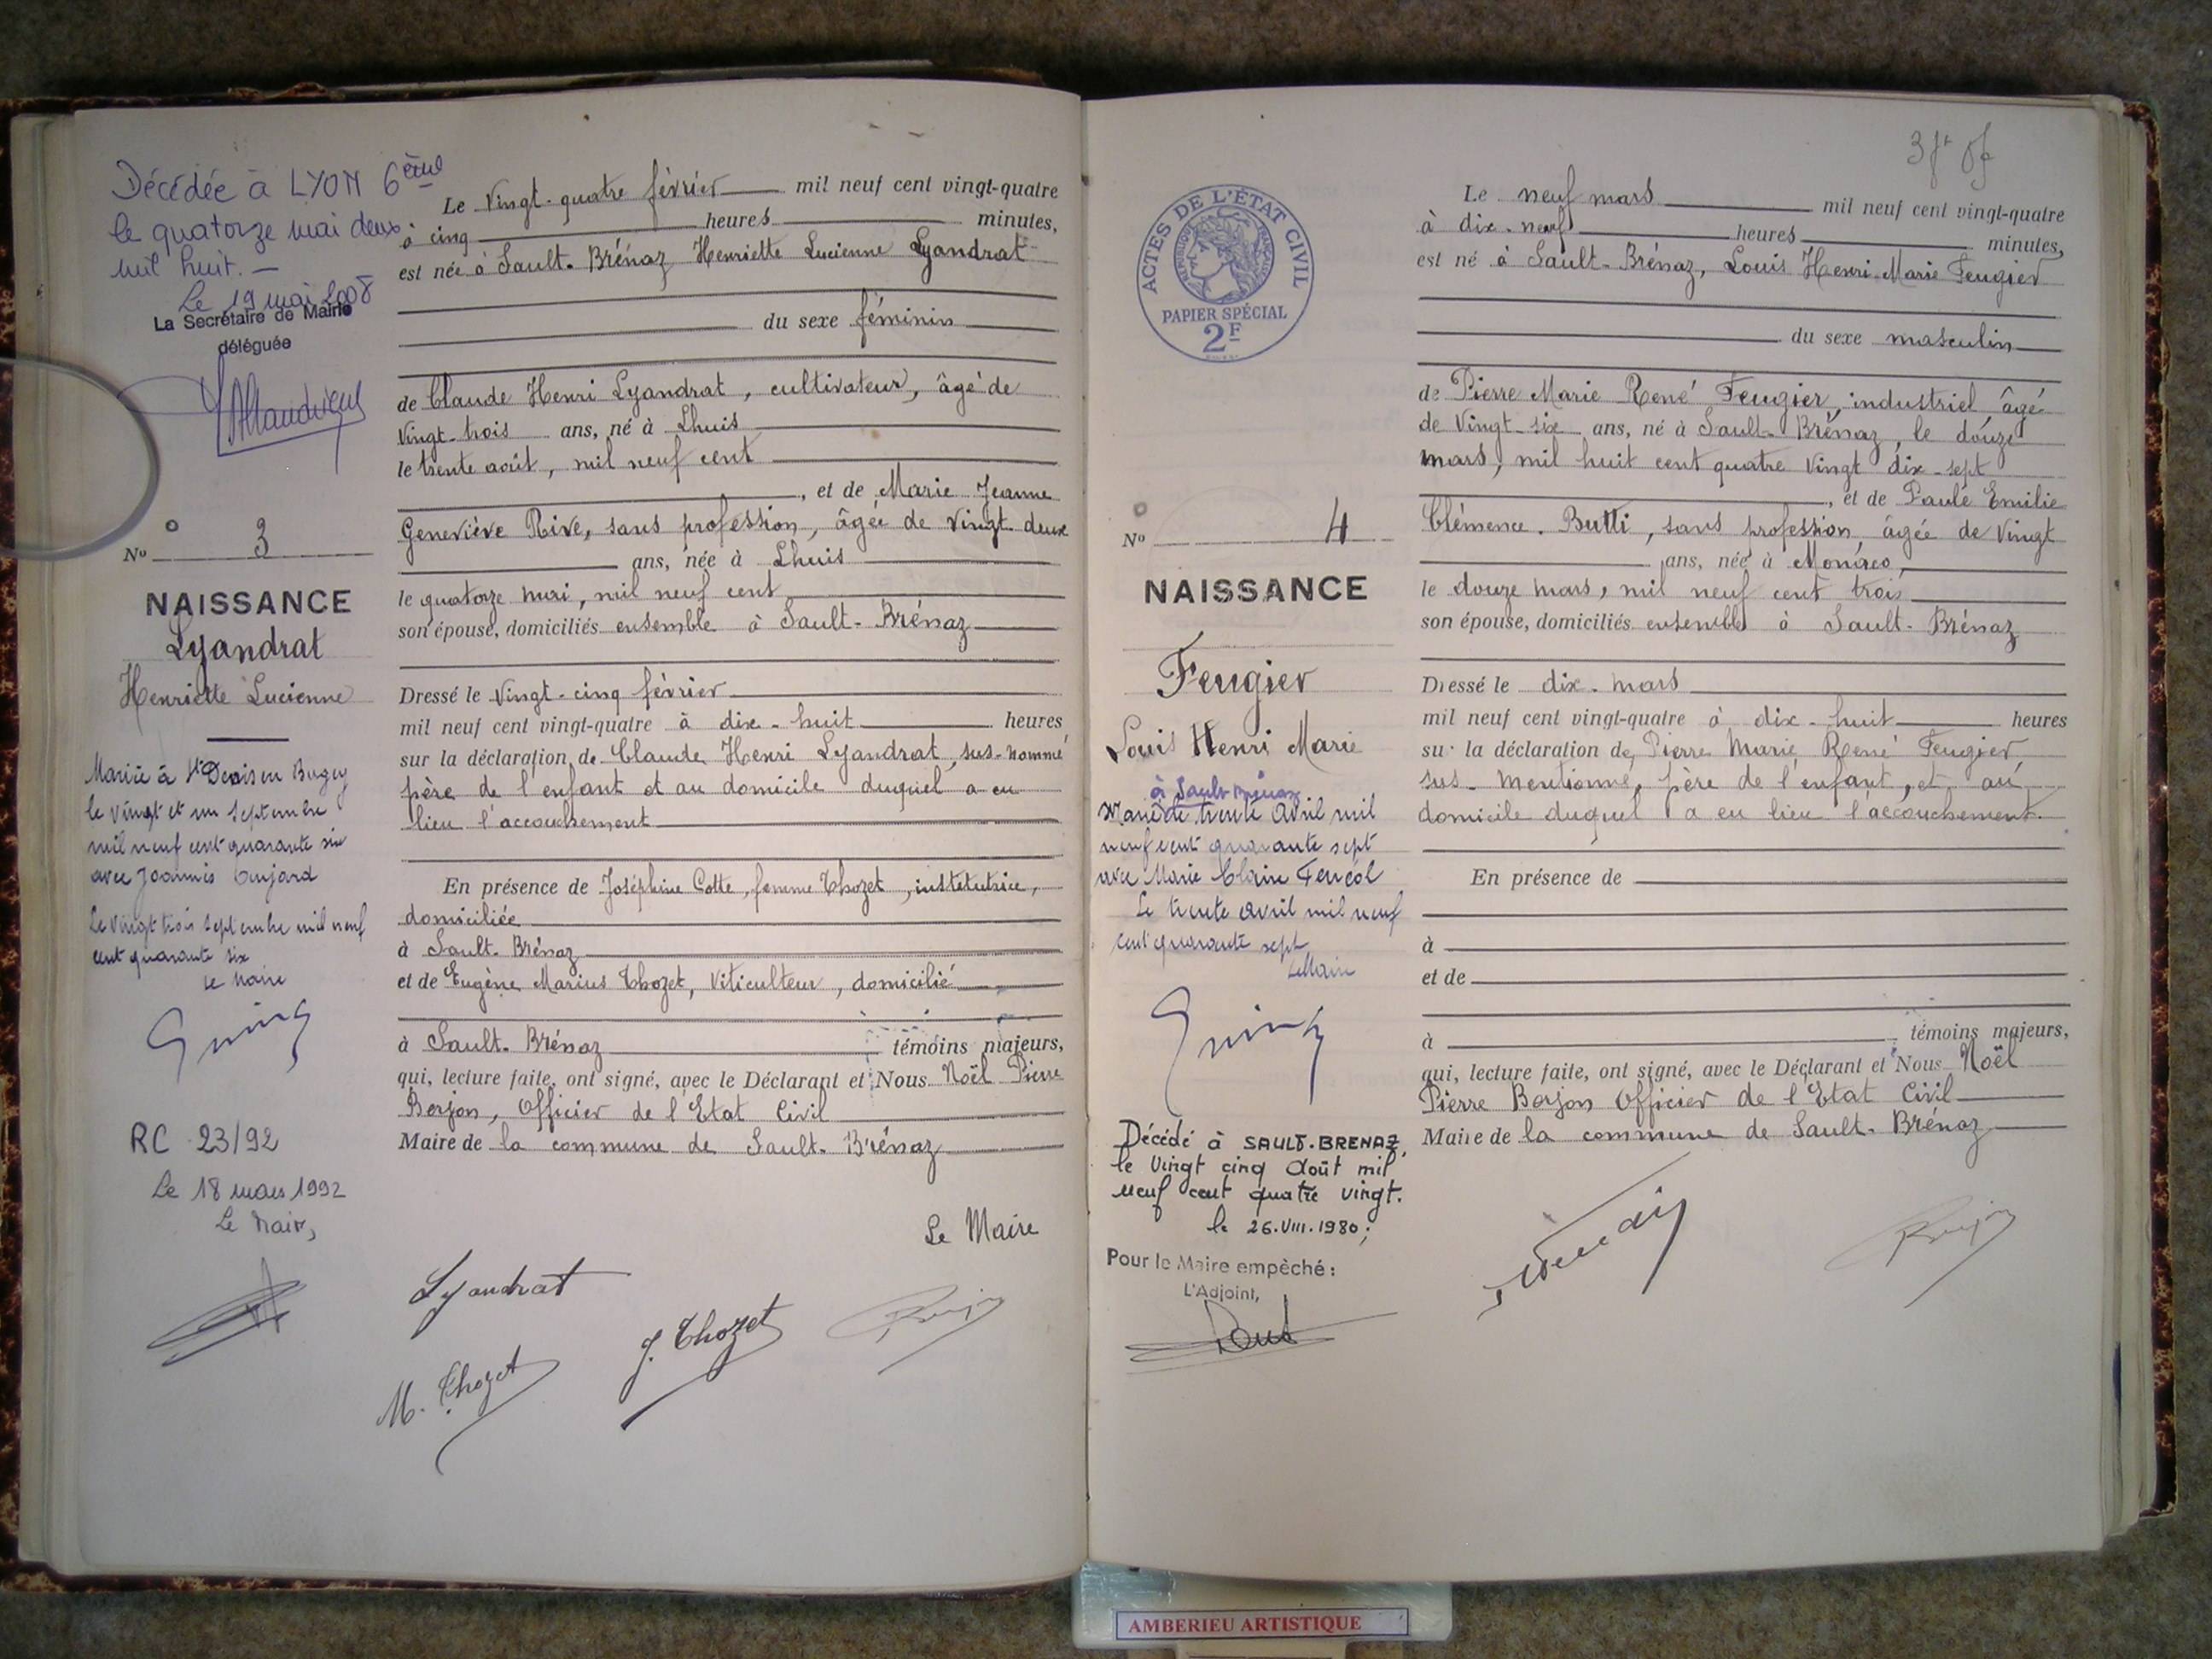 Décédée à LYON 6ème
le quatorze mai deux
mil huit. —
Le 19 mai 2008
La Secrétaire de Mairie
déléguée
N° 3
NAISSANCE
Lyandrat
Henriette Lucienne
Mariée à St Denis en Bugey
le vingt et un septembre
mil neuf cent quarante six
avec Joannis
le vingt trois septembre mil neuf
cent quarante six
Le Maire
RC 23/92
Le 18 mars 1992
Le Maire,
Le Vingt-quatre février mil neuf cent vingt-quatre
à cinq heures minutes,
est née à Sault-Brénaz Henriette Lucienne Lyandrat
du sexe féminin
de Claude Henri Lyandrat, cultivateur, âgé de
Vingt-trois ans, né à Lhuis
le trente août, mil neuf cent
, et de Marie Jeanne
Geneviève Rive, sans profession, âgée de vingt deux
ans, née à Lhuis
le quatorze mai, mil neuf cent
son épouse, domiciliés ensemble à Sault-Brénaz
Dressé le Vingt-cinq février
mil neuf cent vingt-quatre à dix-huit heures
sur la déclaration de Claude Henri Lyandrat, sus-nommé
père de l'enfant et au domicile duquel a eu
lieu l'accouchement
En présence de Joséphine Cotte, femme Thozet, institutrice,
domiciliée
à Sault-Brénaz
et de Eugène Marius Thozet, Viticulteur, domicilié
à Sault-Brénaz témoins majeurs,
qui, lecture faite, ont signé, avec le Déclarant et Nous Noël Pierre
Berjon, Officier de l'Etat Civil
Maire de la commune de Sault-Brénaz
Le Maire
Lyandrat
M. Thozet
J. Thozet
ACTES DE L'ÉTAT CIVIL
RÉPUBLIQUE FRANÇAISE
PAPIER SPÉCIAL
2F
N° 4
NAISSANCE
Feugier
Louis Henri Marie
à Sault Brénaz
Marié le trente avril mil
neuf cent quarante sept
avec Marie Claire
Le trente avril mil neuf
cent quarante sept
Le Maire
Décédé à SAULT-BRENAZ,
le vingt cinq Août mil
neuf cent quatre vingt.
le 26.VIII.1980;
Pour le Maire empêché :
L'Adjoint,
Le neuf mars mil neuf cent vingt-quatre
à dix-neuf heures minutes,
est né à Sault-Brénaz, Louis Henri-Marie Feugier
du sexe masculin
de Pierre Marie René Feugier, industriel âgé
de Vingt-six ans, né à Sault-Brénaz, le douze
mars, mil huit cent quatre vingt dix-sept
, et de Paule Emilie
Clémence Butti, sans profession, âgée de Vingt
ans, née à Monaco,
le douze mars, mil neuf cent trois
son épouse, domiciliés ensemble à Sault-Brénaz
Dressé le dix-mars
mil neuf cent vingt-quatre à dix-huit heures
sur la déclaration de Pierre Marie René Feugier
sus-mentionné, père de l'enfant, et au
domicile duquel a eu lieu l'accouchement.
En présence de
à
et de
à témoins majeurs,
qui, lecture faite, ont signé, avec le Déclarant et Nous Noël
Pierre Berjon Officier de l'Etat Civil
Maire de la commune de Sault-Brénaz
AMBERIEU ARTISTIQUE